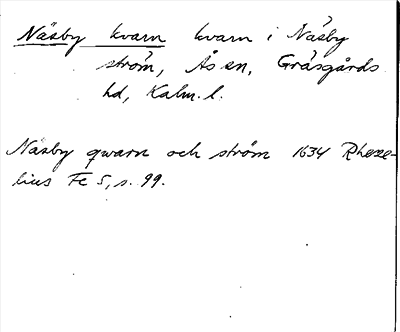 Näsby kvarn kvarn i Näsby
ström, Ås sn, Gräsgårds
hd, Kalm. l.
Näsby qwarn och ström 1634 Rheze-
lius Fc 5, s. 99.